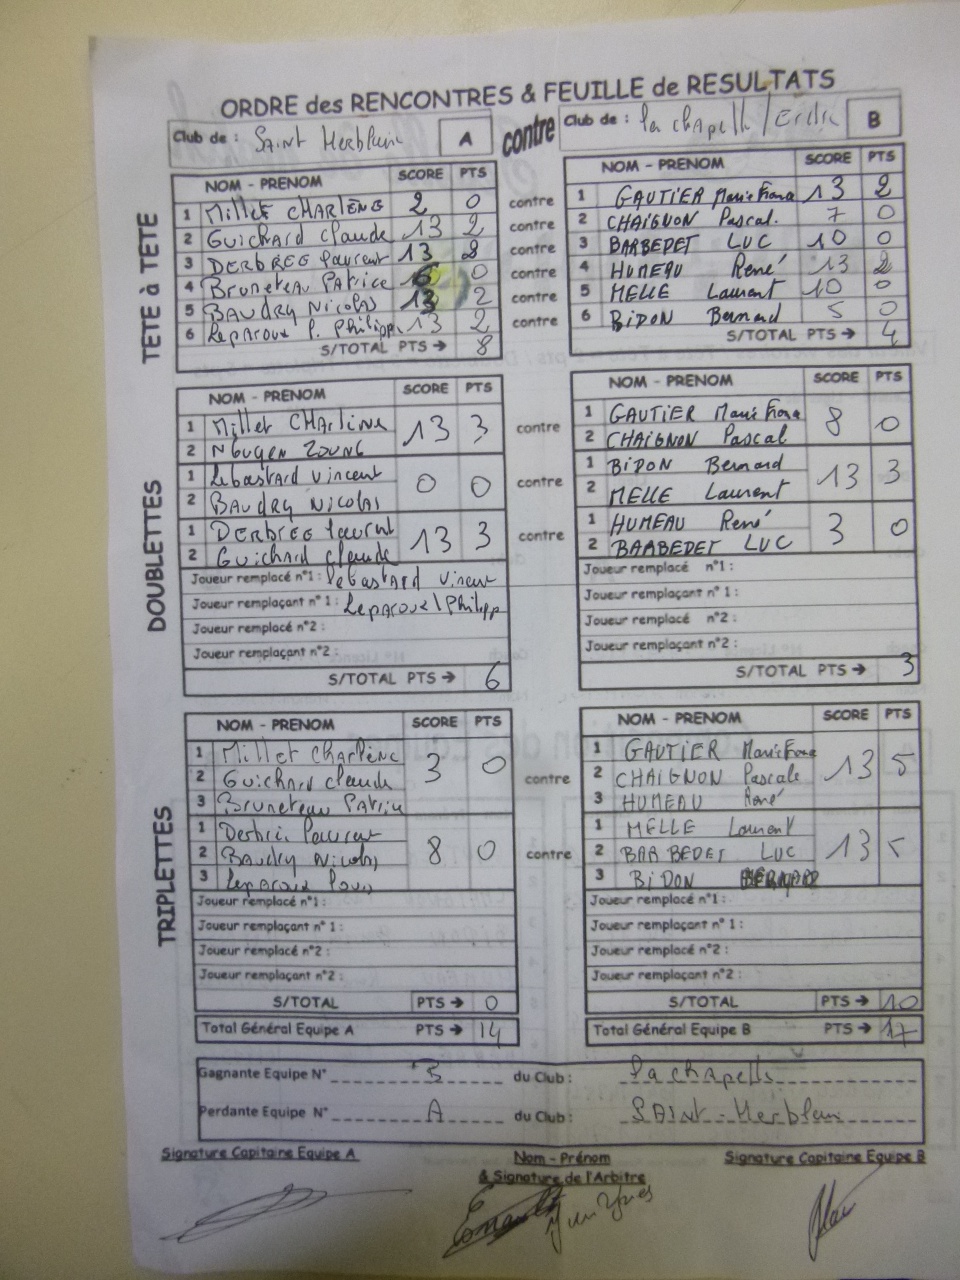 ORDRE des RENCONTRES & FEUILLE de RESULTATS
Club de : Saint Herblain A contre Club de : la chapelle / Erdre B
TETE à TÊTE
NOM - PRENOM SCORE PTS NOM - PRENOM SCORE PTS
1 Millet CHARLÈNE 2 0 contre 1 GAUTIER Marie Fiona 13 2
2 Guichard claude 13 2 contre 2 CHAIGNON Pascal. 7 0
3 DERBREE laurent 13 2 contre 3 BARBEDET LUC 10 0
4 Bruneteau Patrice 6 0 contre 4 HUMEAU René 13 2
5 BAUDRY NICOLAS 13 2 contre 5 MELLE Laurent 10 0
6 Leparoux P. Philipp. 13 2 contre 6 BIDON Bernard 5 0
S/TOTAL PTS → 8 S/TOTAL PTS → 4
DOUBLETTES
NOM - PRENOM SCORE PTS NOM - PRENOM SCORE PTS
1 Millet CHArline 13 3 contre 1 GAUTIER Marie Fiona 8 0
2 NGUYEN ZOUNG 2 CHAIGNON Pascal
1 Lebastard Vincent 0 0 contre 1 BIDON Bernard 13 3
2 BAUDRY NICOLAS 2 MELLE Laurent
1 DERBREE laurent 13 3 contre 1 HUMEAU René 3 0
2 Guichard claude 2 BARBEDET LUC
Joueur remplacé n°1 : Lebastard Vincent Joueur remplacé n°1 :
Joueur remplaçant n° 1 : Leparoux Philipp Joueur remplaçant n° 1 :
Joueur remplacé n°2 : Joueur remplacé n°2 :
Joueur remplaçant n°2 : Joueur remplaçant n°2 :
S/TOTAL PTS → 6 S/TOTAL PTS → 3
TRIPLETTES
NOM - PRENOM SCORE PTS NOM - PRENOM SCORE PTS
1 Millet Charlène 3 0 contre 1 GAUTIER Marie Fiona 13 5
2 Guichard claude 2 CHAIGNON Pascale
3 Bruneteau Patrice 3 HUMEAU René
1 Derbrée Laurent 8 0 contre 1 MELLE Laurent 13 5
2 Baudry Nicolas 2 BARBEDET LUC
3 Leparoux 3 BIDON BERNARD
Joueur remplacé n°1 : Joueur remplacé n°1 :
Joueur remplaçant n° 1 : Joueur remplaçant n° 1 :
Joueur remplacé n°2 : Joueur remplacé n°2 :
Joueur remplaçant n°2 : Joueur remplaçant n°2 :
S/TOTAL PTS → 0 S/TOTAL PTS → 10
Total Général Equipe A PTS → 14 Total Général Equipe B PTS → 17
Gagnante Equipe N° B du Club : la chapelle
Perdante Equipe N° A du Club : SAINT-Herblain
Signature Capitaine Equipe A Nom - Prénom Signature Capitaine Equipe B
& Signature de l'Arbitre